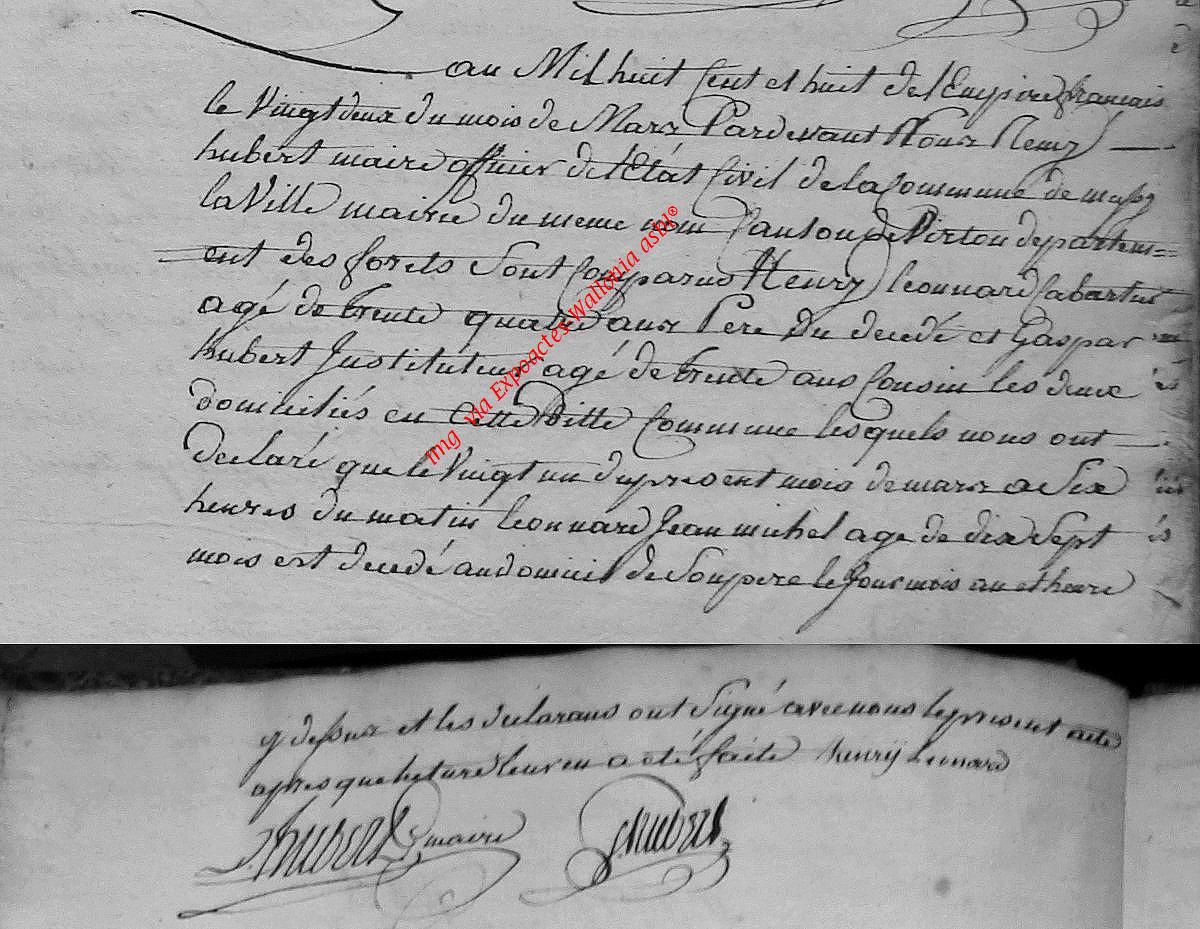 an Mil huit Cent et huit de l'Empire francais
le Vingt deux du mois de Mars Pardevant Nous Henry
hubert maire officier de l'Etat Civil de la Commune de mussy
la Ville mairie du meme nom Canton de Virton departem=
ent des forets Sont Comparus Henry leonnard Cabartier
agé de trente quatre ans Pere du decedé et Gaspar
hubert Instituteur agé de trente ans Cousin les deux
domiciliés en cette ditte Commune lesquels nous ont
declaré que le Vingt un du present mois de mars a Six
heures du matin leonnard Jean michel age de dix Sept
mois est decedé au domicil de Son pere le Jour mois an et heure
Img via Expoactes Wallonia asbl®
cy dessus et les declarans ont Signé avec nous le present acte
apres que lecture leur en a eté faite henrÿ Leonard
hubert maire
G hubert